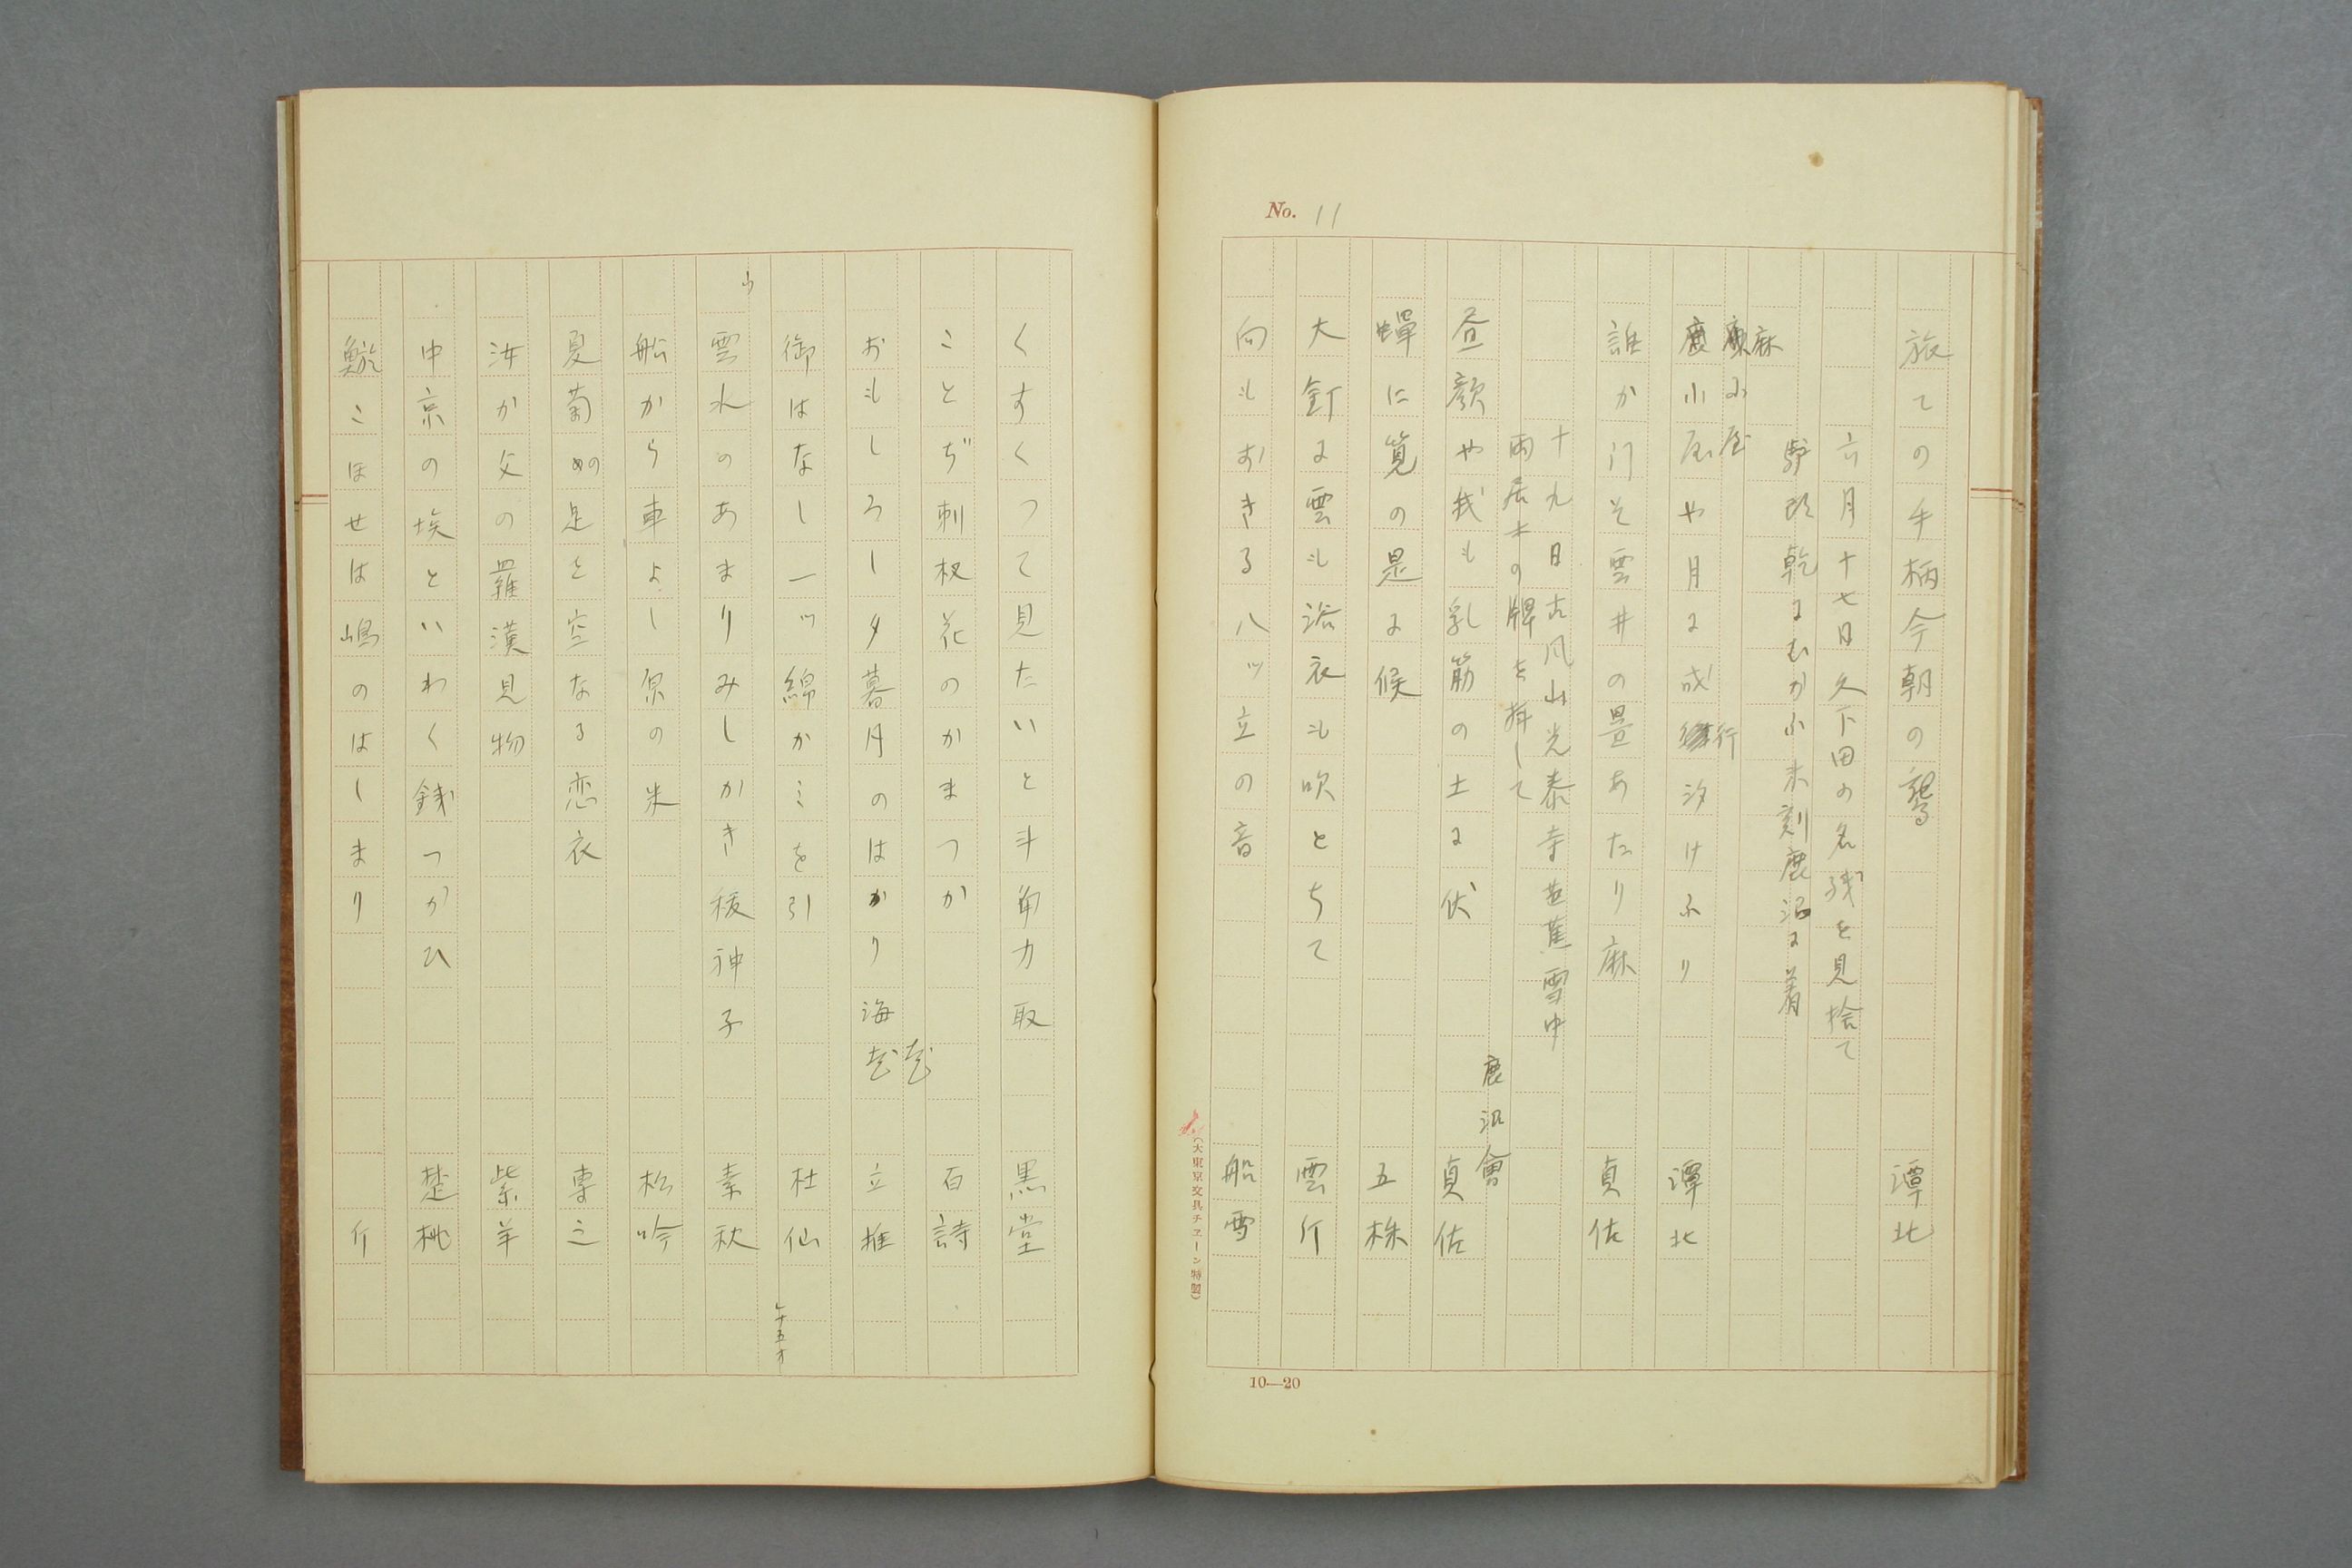 No. 11
旅ての手柄今朝の鴽 潭北
六月十七日久下田の名残を見捨て
駒頭乾にむかふ未刻鹿沼に着
麻小屋や月に成行汐けふり 潭北
誰か门そ雲井の畳あたり麻 貞佐
十九日古風山光泰寺芭蕉雪中
両居士の牌を拝して
鹿沼會
昼顔や我も乳筋の土に伏 貞佐
蟬に筧の是に候 五株
大釘に雲も浴衣も吹とちて 雲斤
向もおきる八ッ立の音 船雪
(大東京文具チェーン特製)
10—20
くすくつて見たいと斗角力取 黒堂
ことぢ刺杈花のかまつか 百詩
おもしろし夕暮月のはかり海 立推
御はなし一ッ綿かミを引 杜仙
十五オ
山
雲水のあまりみしかき稜神子 素秋
船から車よし原の米 松吟
夏菊の足を空なる恋衣 専之
汝か父の羅漢見物 紫羊
中京の埃といわく銭つかひ 楚桃
こほせは嶋のはしまり 斤